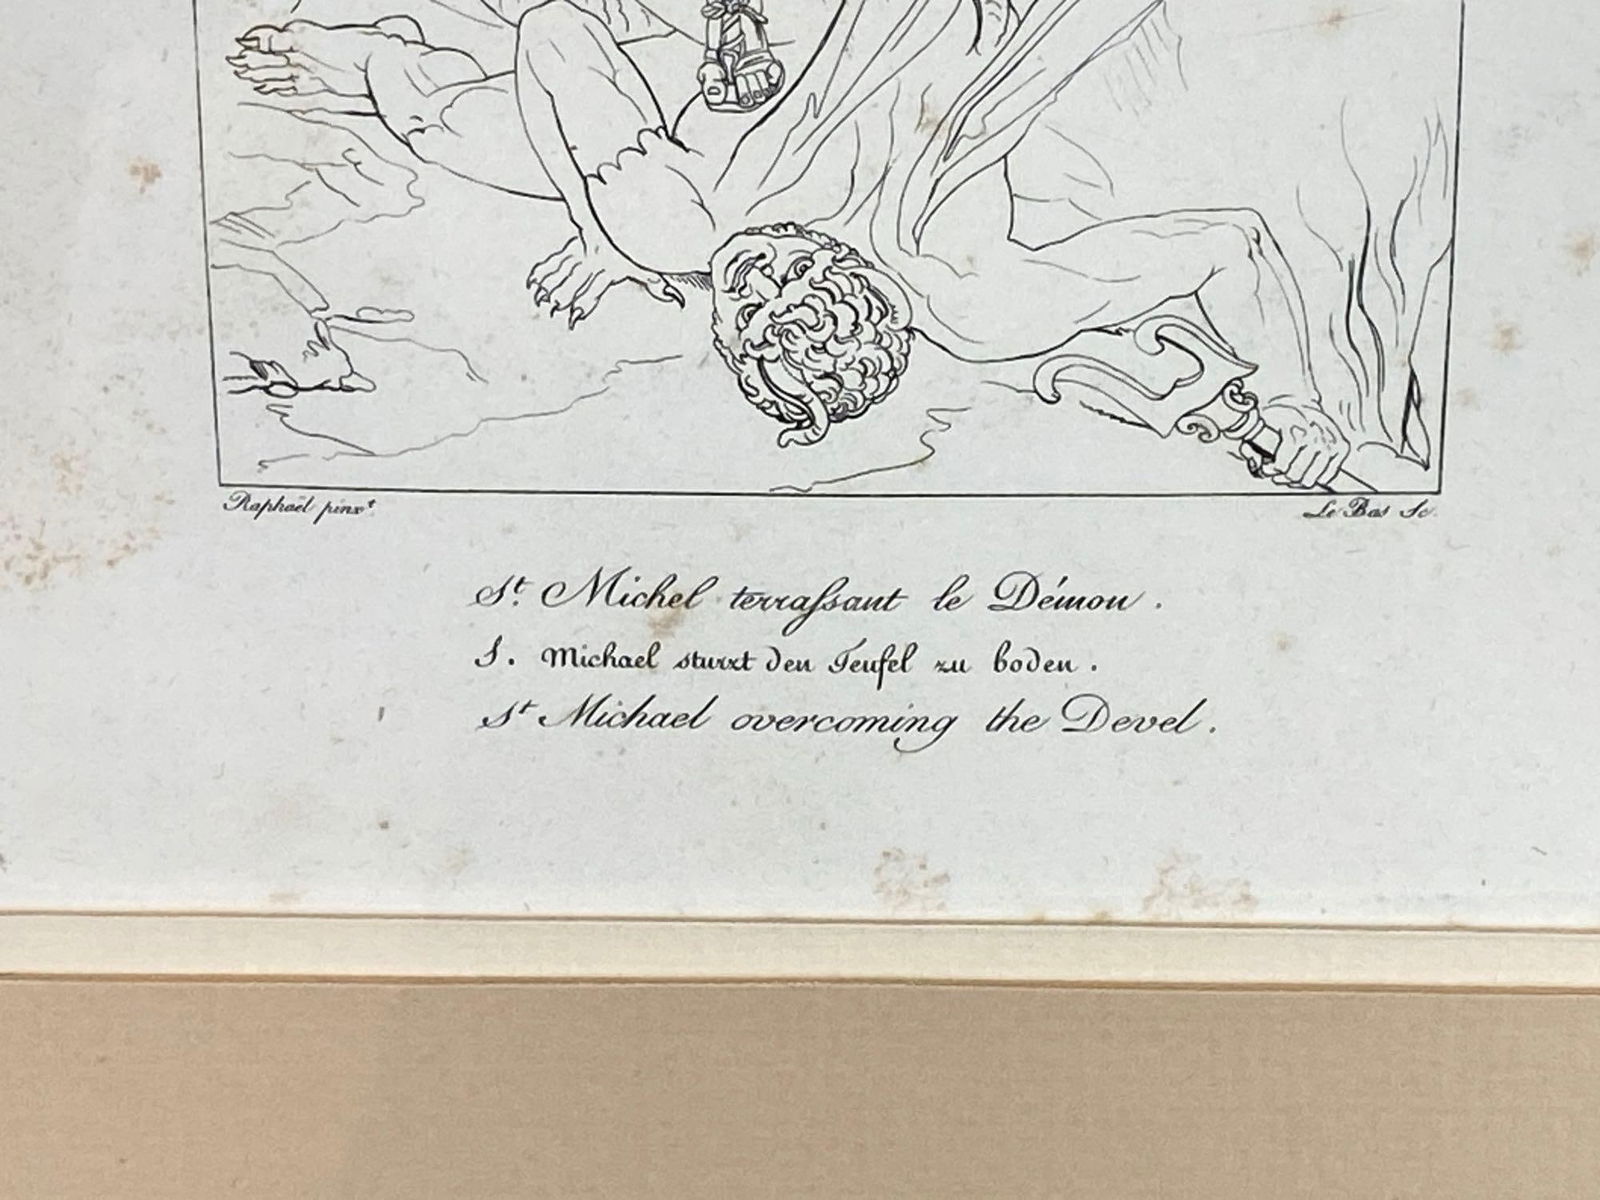 Raphaël pinxt
Le Bas Sc.
St. Michel terraſsant le Démon.
S. Michael sturzt den Teufel zu boden.
St Michael overcoming the Devel.